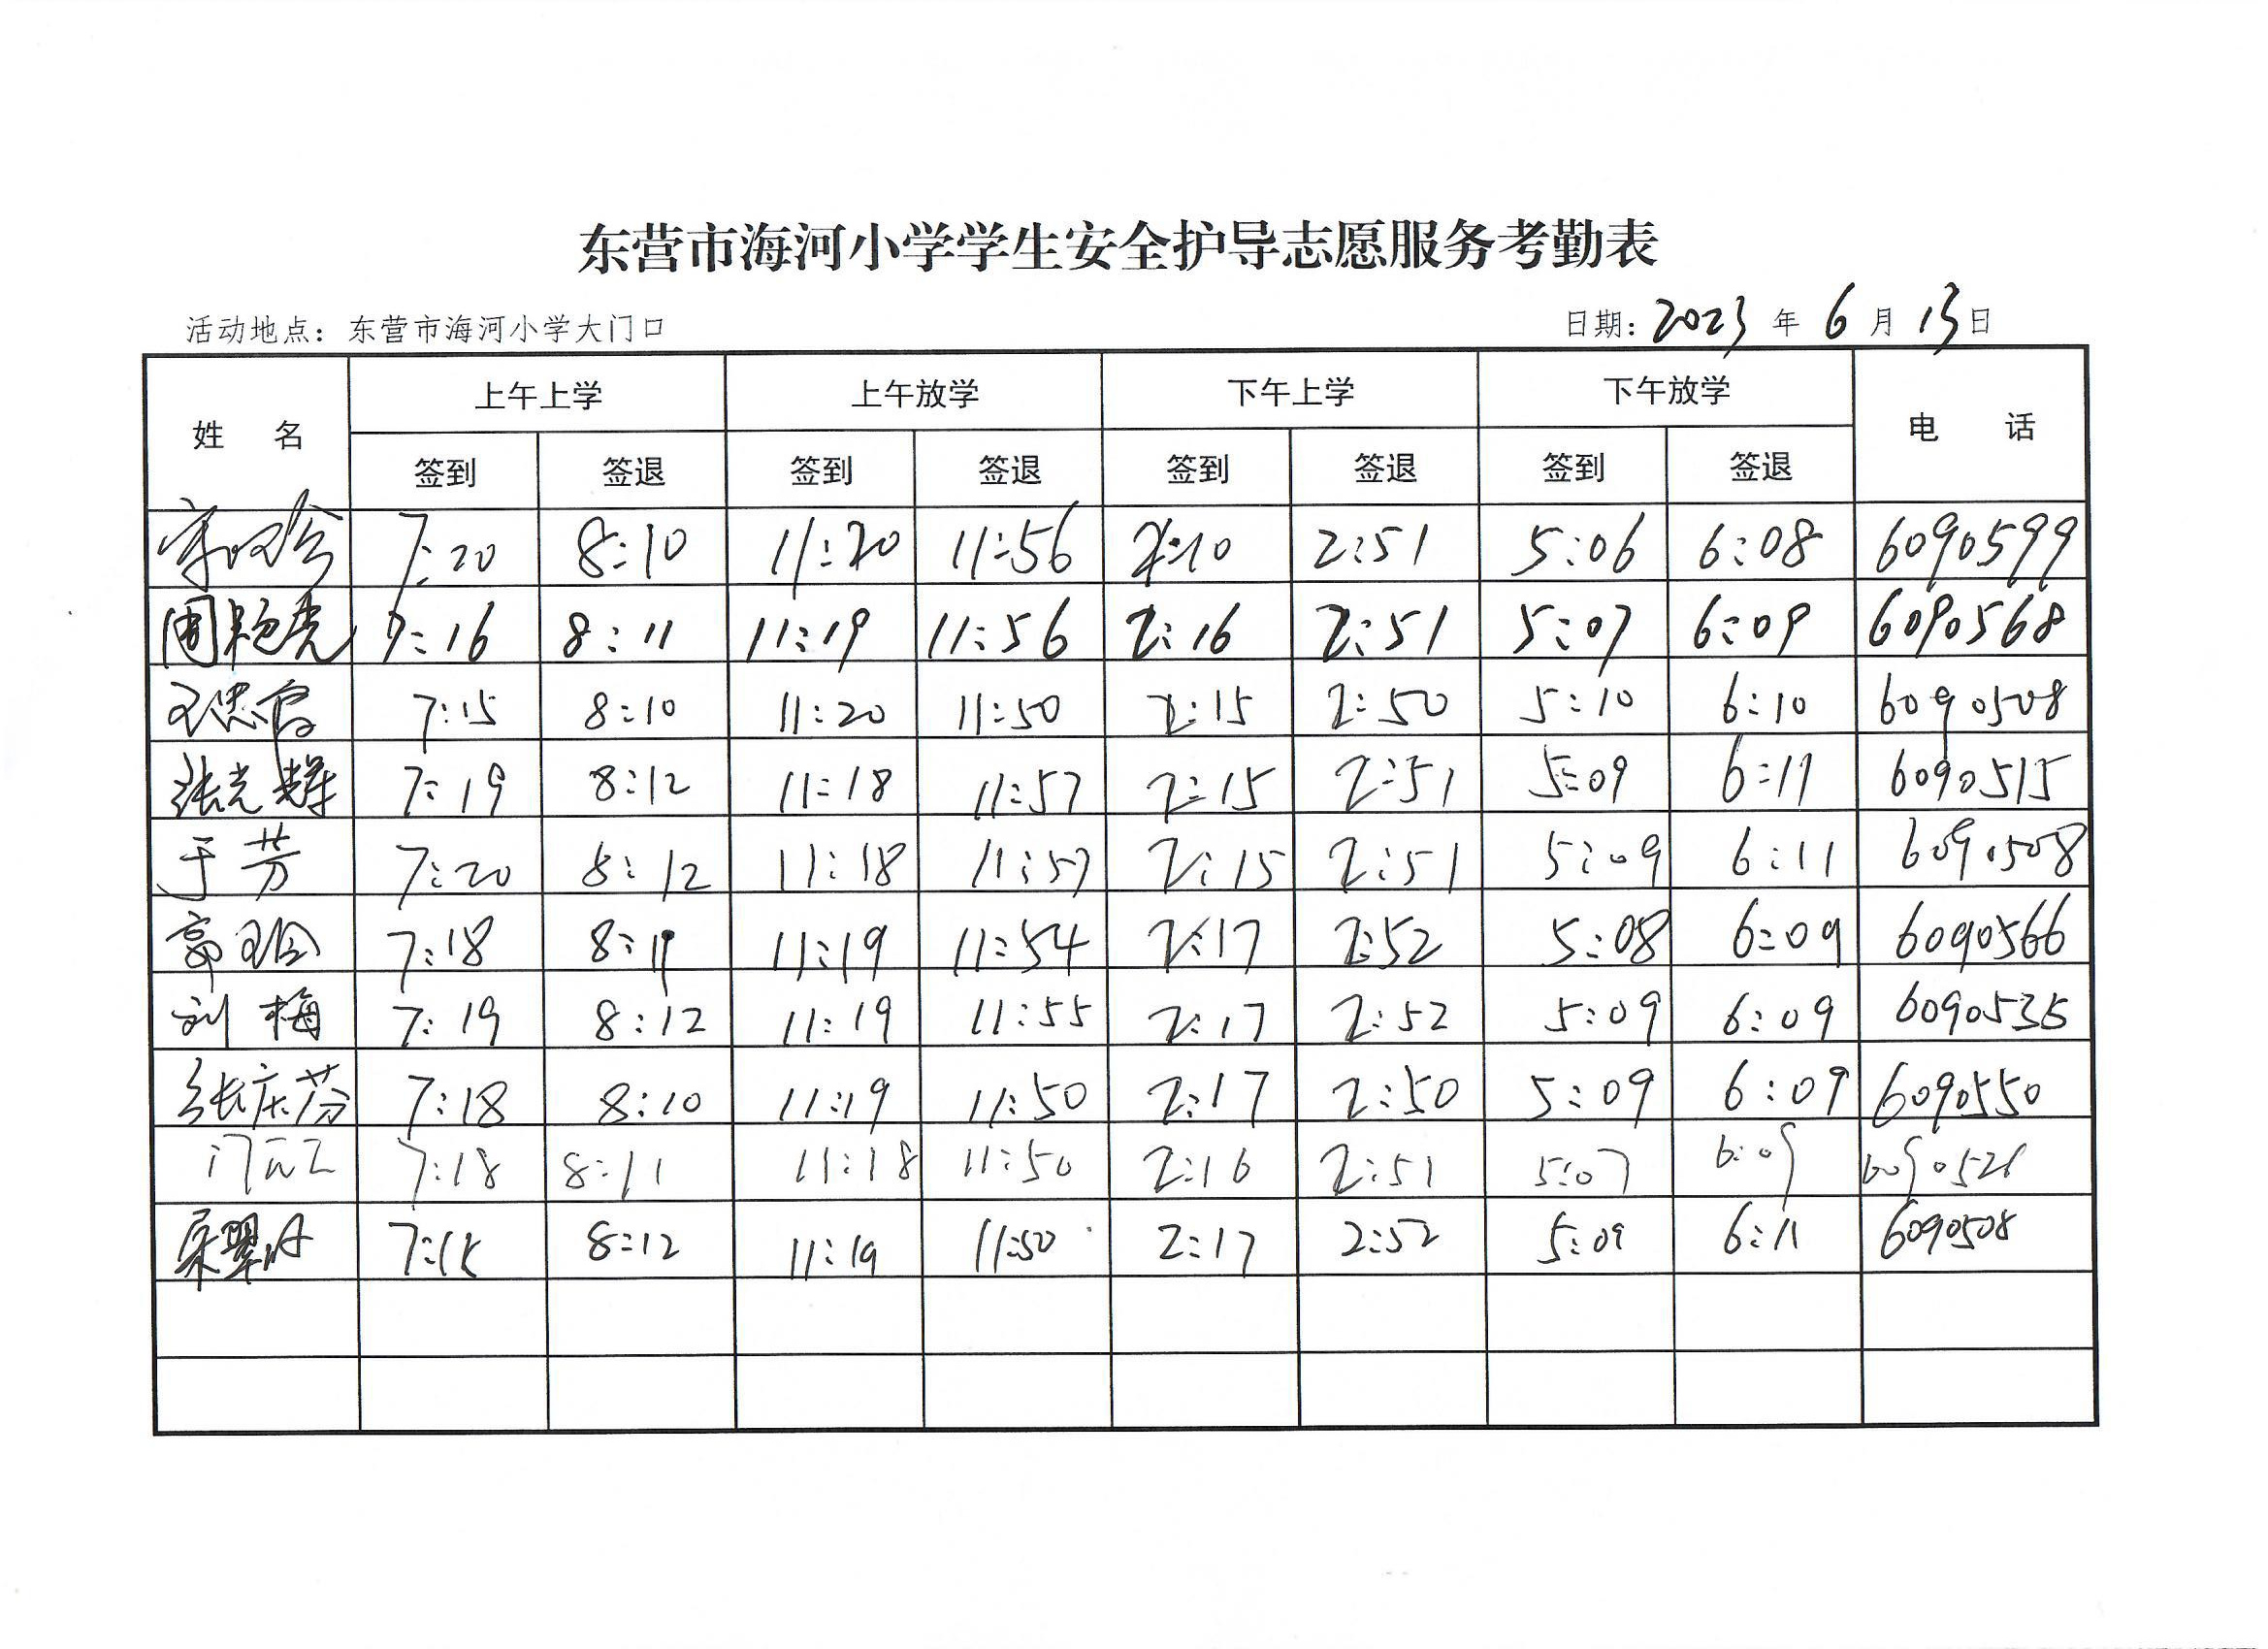 东营市海河小学学生安全护导志愿服务考勤表
活动地点：东营市海河小学大门口 日期：2023年6月13日
姓 名 上午上学 上午放学 下午上学 下午放学 电 话
签到 签退 签到 签退 签到 签退 签到 签退
7:20 8:10 11:20 11:56 2:10 2:51 5:06 6:08 6090599
7:16 8:11 11:19 11:56 2:16 2:51 5:07 6:09 6090568
7:15 8:10 11:20 11:50 2:15 2:50 5:10 6:10 6090508
张光辉 7:19 8:12 11:18 11:57 2:15 2:51 5:09 6:11 6090515
于芳 7:20 8:12 11:18 11:57 2:15 2:51 5:09 6:11 6090508
郭 7:18 8:11 11:19 11:54 2:17 2:52 5:08 6:09 6090566
刘梅 7:19 8:12 11:19 11:55 2:17 2:52 5:09 6:09 6090535
张庆芬 7:18 8:10 11:19 11:50 2:17 2:50 5:09 6:09 6090550
7:18 8:11 11:18 11:50 2:16 2:51 5:07 6:09
7:15 8:12 11:19 11:50 2:17 2:52 5:09 6:11 6090508